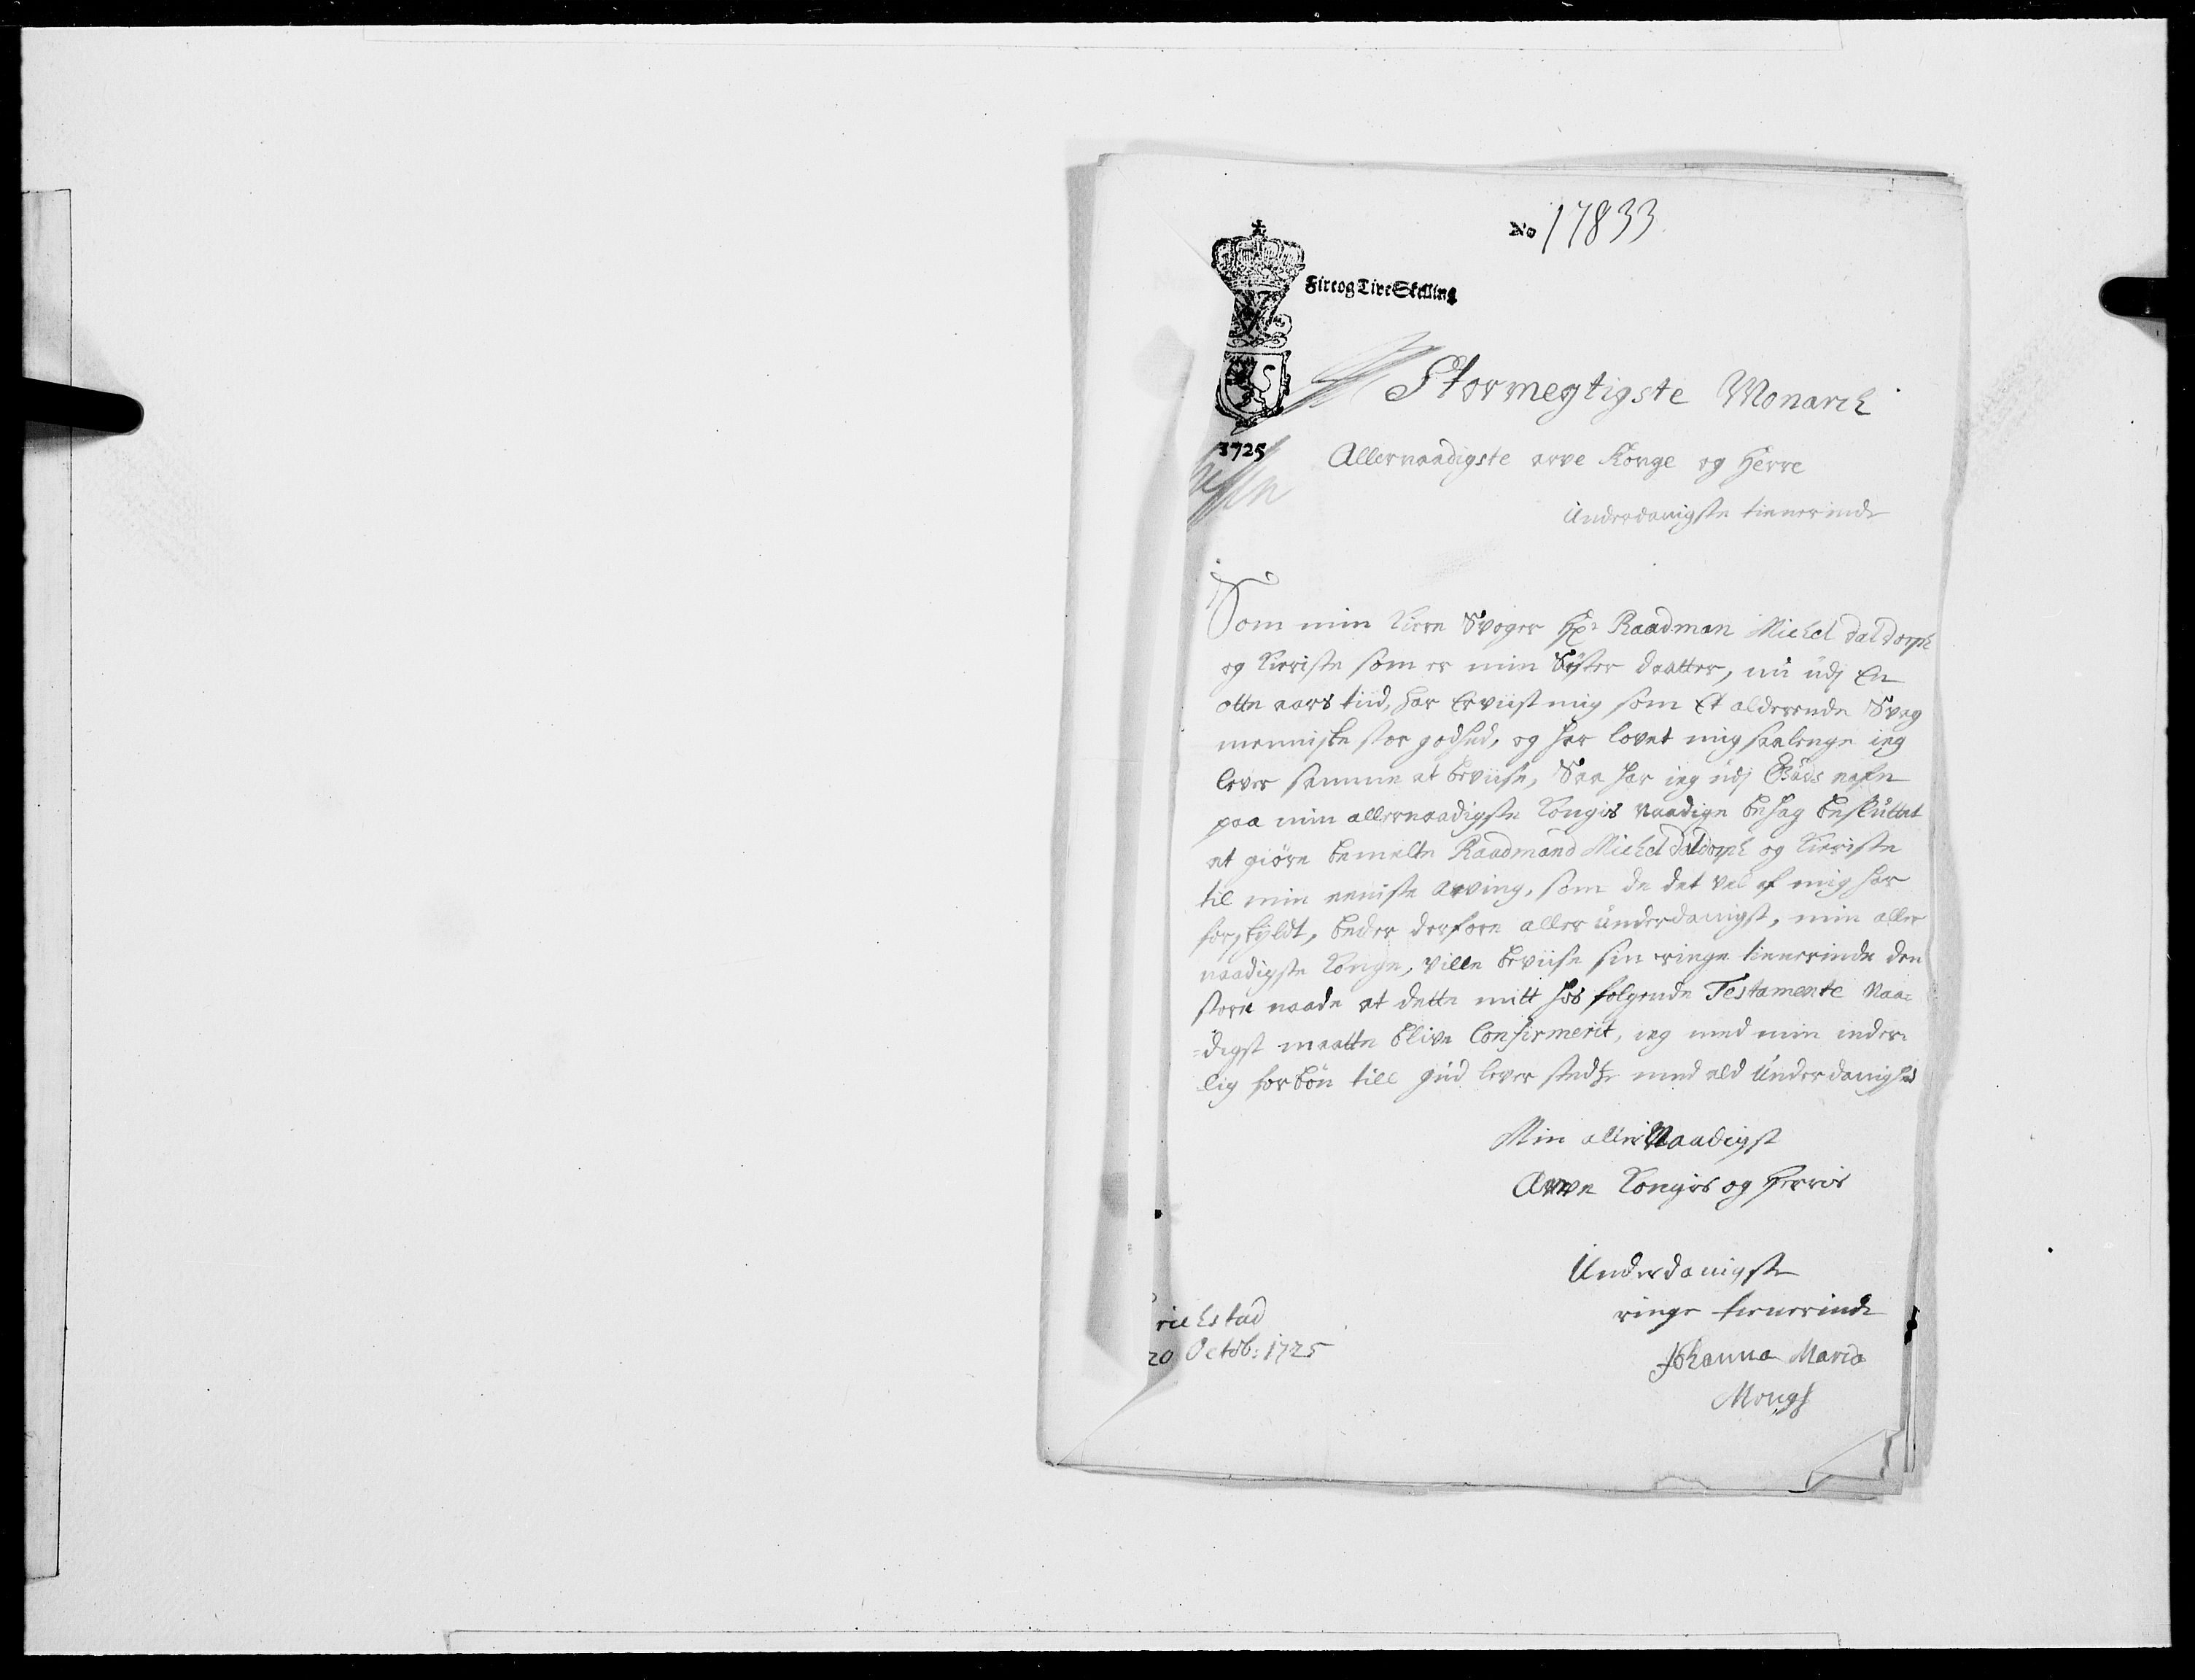 No 17833
Fire og Tive Skilling
1725
Stormegtigste Monarch
Allernaadigste arve Konge og Herre
Underdanigste tienerinde
Som min Kiere Svoger Hr Raadman Michel Daldorph
og Kieriste som er min Søster daatter, nu udj En
otte aars tiid, har Erviist mig som Et alderende Svag
menniske stor godhed, og har lovet mig saalenge ieg
lever samme at beviise, Saa har ieg udj Guds nafn
paa min allernaadigste Kongis naadige behag besluttet
at giøre bemelte Raadmand Michel Daldorph og Kieriste
til min eeniste arving, som de det vel af mig har
forskyldt, beder derfore aller underdanigst, min aller
naadigste Konge, ville beviise sin ringe tienerinde den
store naade at dette mitt hos folgende Testamente Naa-
=digst maatte blive Confirmerit, ieg med min inder-
lig forbøn till gud lever stedse med ald Underdanighed
Min aller Naadigst
Arve Kongis og Herris
Underdanigste
ringe tienerinde
richstad
20 Octob: 1725
Johanna Maria